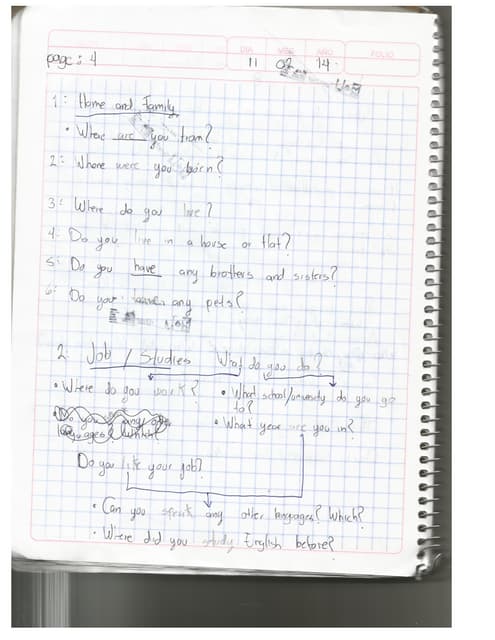 DIA MES AÑO FOLIO
page: 4 11 02 14
1: Home and Family
• Where are you from?
2: Where were you born?
3: Where do you live?
4: Do you live in a house or flat?
5: Do you have any brothers and sisters?
6: Do you have any pets?
2. Job / Studies What do you do?
• Where do you work? • What school/university do you go
to?
• Do you any
languages? Which? • What year are you in?
Do you like your job?
• Can you speak any other languages? Which?
• Where did you study English before?